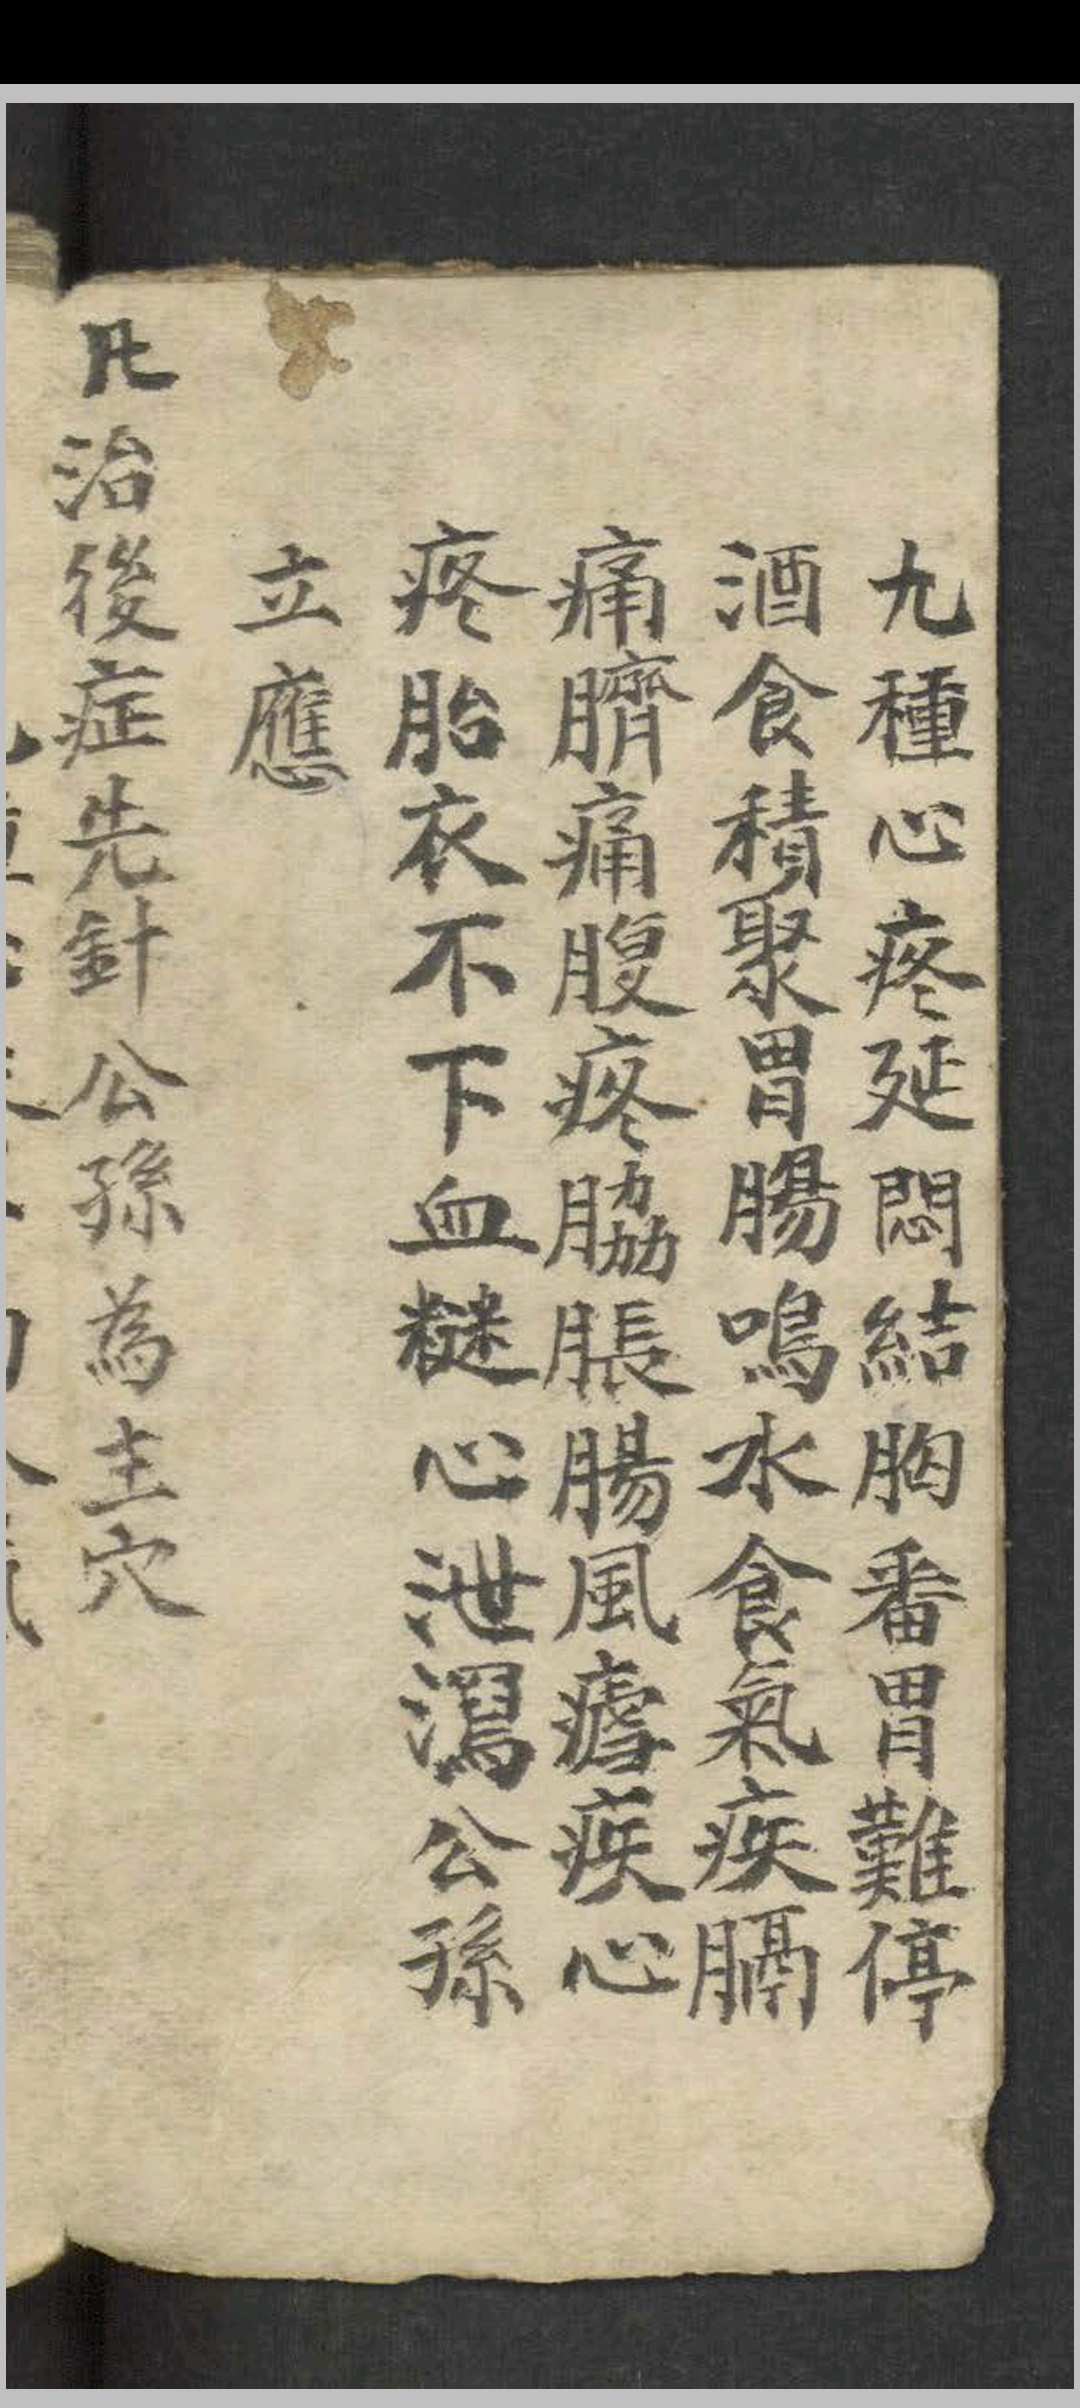 九種心疼延悶結胸番胃難停
酒食積聚胃腸鳴水食氣疾膈
痛臍痛腹疼脇脹腸風瘧疾心
疼胎衣不下血𥻨心泄瀉公孫
立應
凡治後症先針公孫為主穴